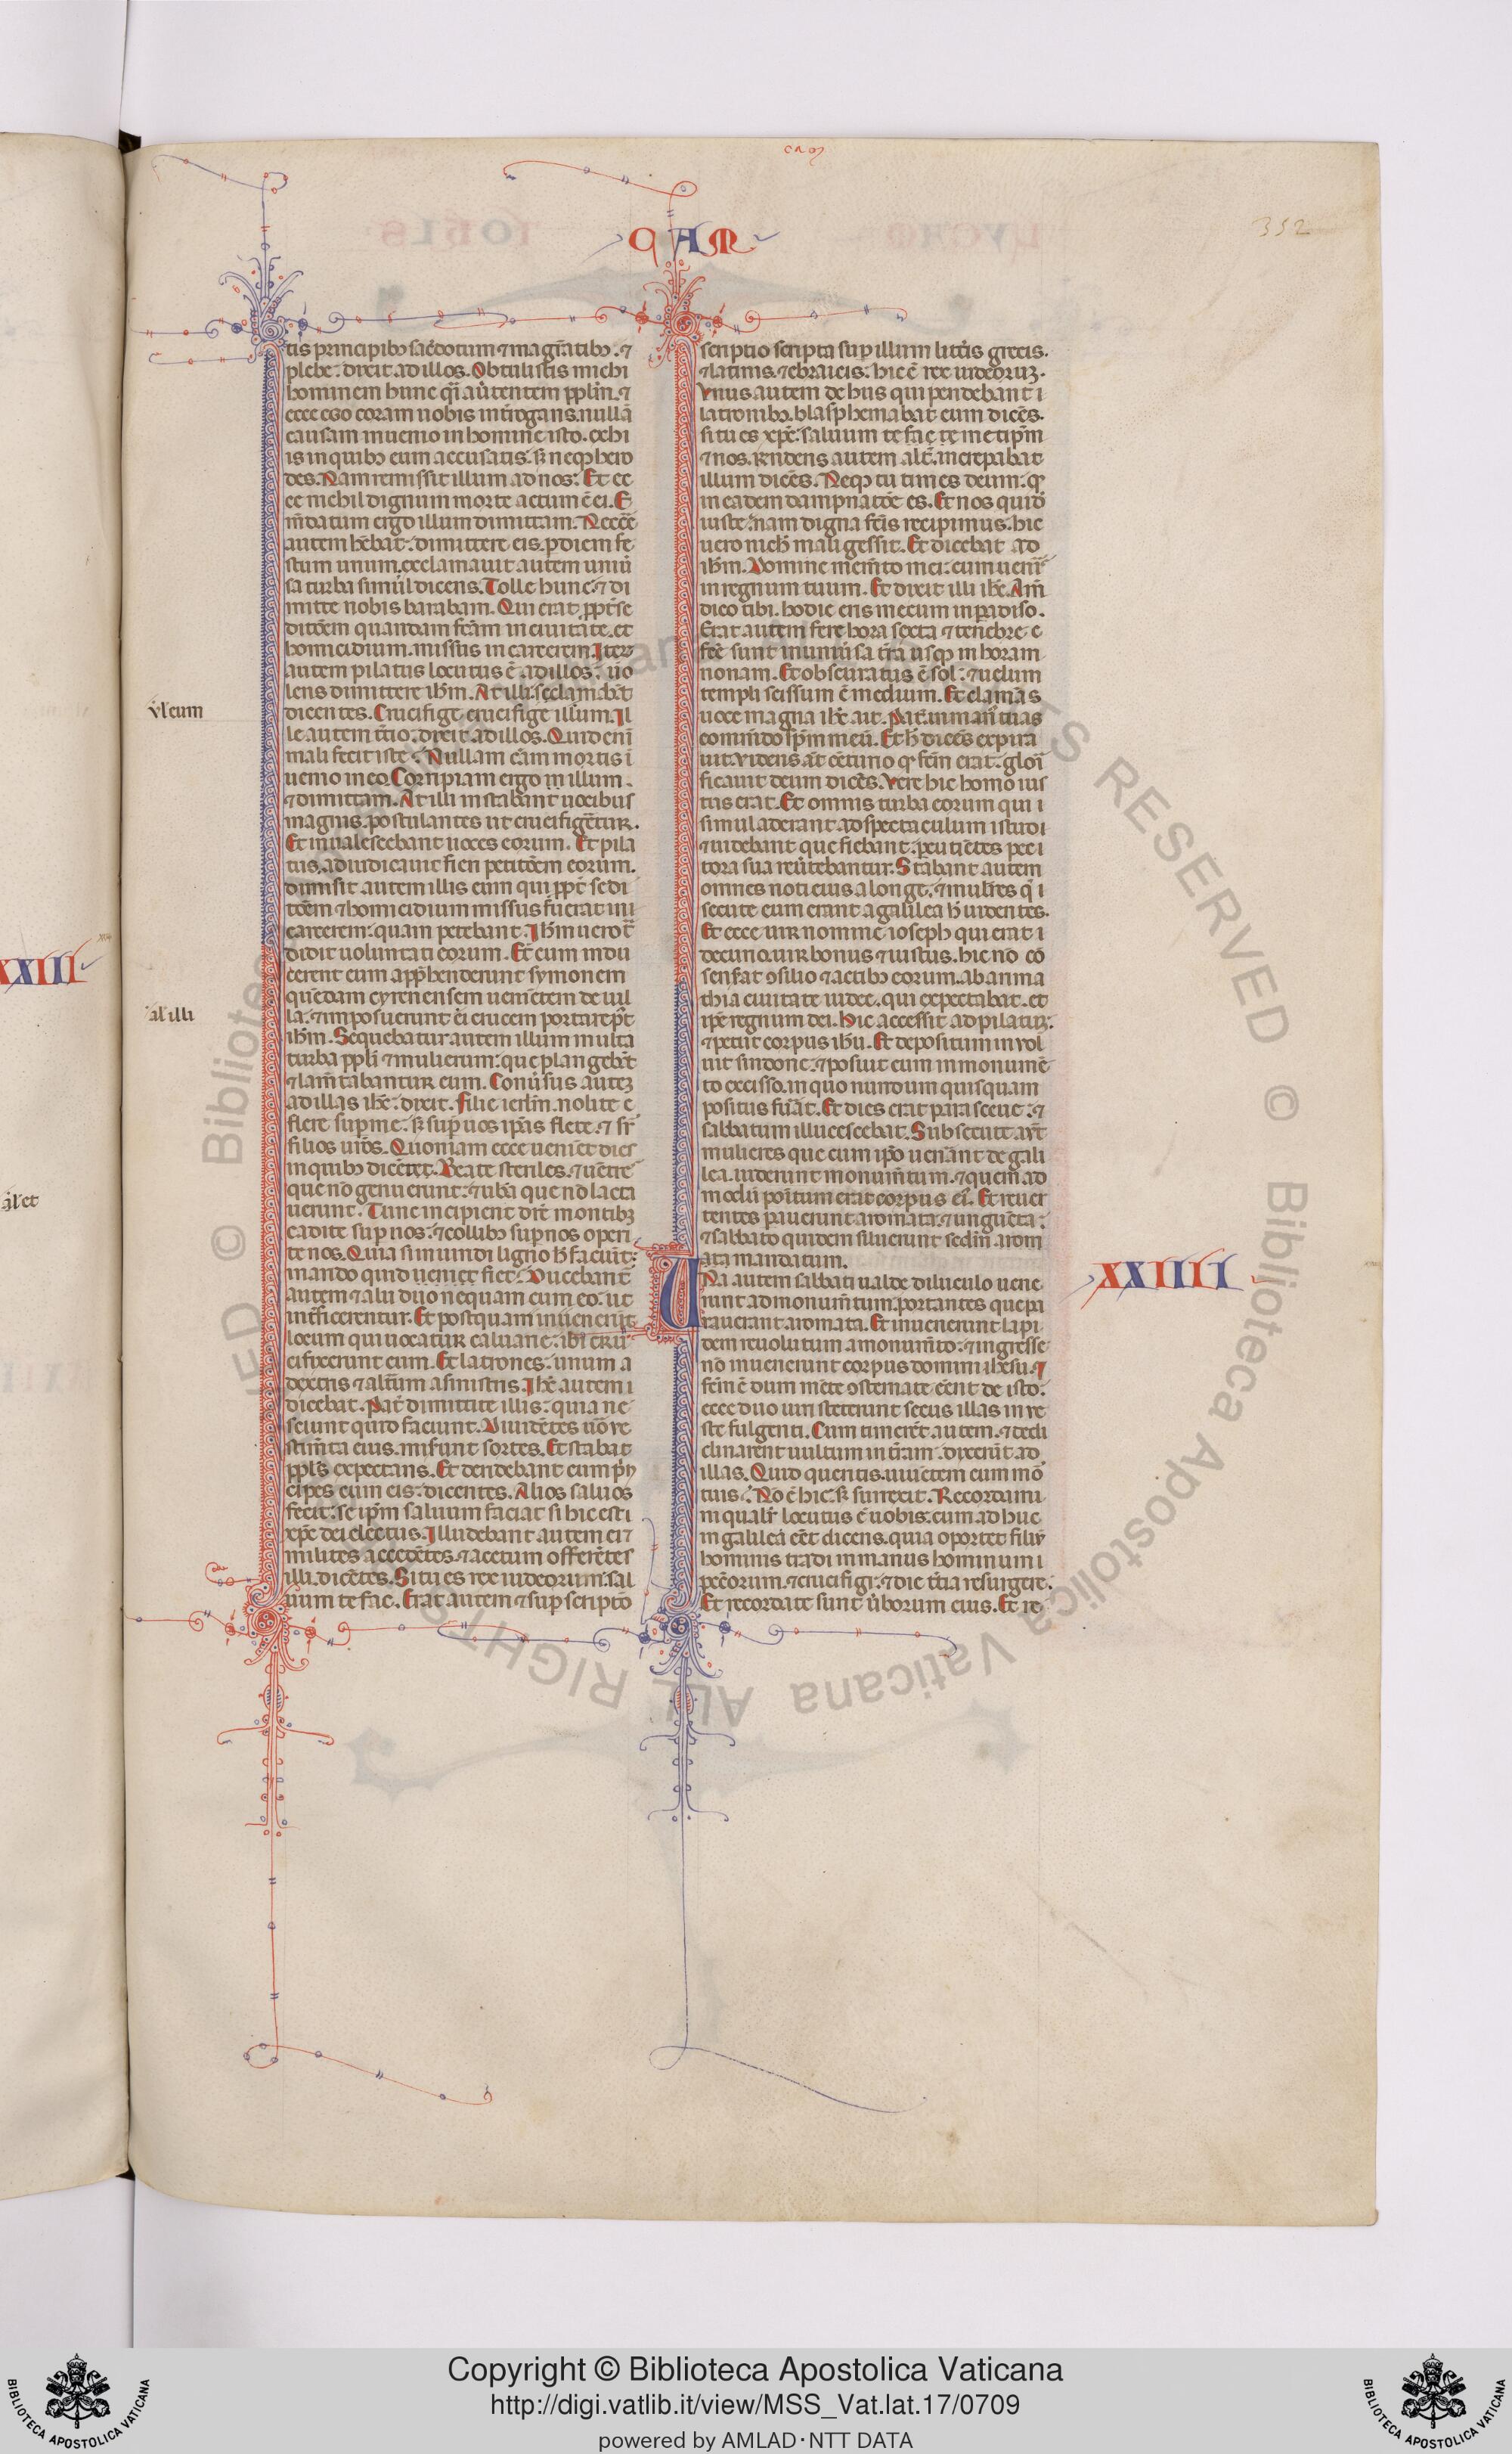 352
QAM
tis principibꝫ sac̾dotum ⁊ magr̃atibꝫ. ⁊
plebe. dixit ad illos. Obtulistis michi
hominem hunc q̃i au̾tentem pplm̃. ⁊
ecce ego coram uobis int̾rogans. nullã
causam inuenio in homine isto. ex hi
is in quibꝫ eum accusatis. sꝫ neqꝫ hero
des. Nam remissit illum ad nos. Et ec
ce nichil dignum morte actum ẽ ei. E
m̃datum ergo illum dimittam. Necc̃e
autem hẽbat. dimittere eis. p diem fe
stum unum. exclamauit autem uniu̾
sa turba simul dicens. Tolle hunc. ⁊ di
mitte nobis barabam. Qui erat ppt̾ se
ditõem quandam fc̃am in ciuitate. et
homicidium. missus in carcerem. Iterꝫ
autem pilatus locutus ẽ ad illos. uo
lens dimittere ih̃m. At illi seclamabãt
dicentes. Crucifige crucifige illum. Il
le autem t̾cio. dixit ad illos. Quid eni
mali fecit iste. Nullam cãm mortis i
uenio in eo. Corripiam ergo in illum.
⁊ dimittam. At illi instabant uocibus
magnis. postulantes ut crucifigẽtur.
Et inualescebant uoces eorum. Et pila
tus. adiudicauit fieri petitõem eorum.
dimisit autem illis eum qui ppt̾ sedi
tõem ⁊ homicidium missus fuerat in
carcerem. quam petebant. Ih̃m uero t̾
didit uoluntati eorum. Et cum indu
cerent eum appr̃henderunt symonem
quẽdam cyrenensem ueniẽtem de uil
la. ⁊ imposuerunt ei crucem portare p̾t
ih̃m. Sequebatur autem illum multa
turba ppli ⁊ mulierum. que plangebãt
⁊ lam̃tabantur eum. Conu̾sus auteꝫ
ad illas ih̃c. dixit. Filie ierlm̃. nolite
flere sup me. sꝫ sup uos ip̃as flete. ⁊ sr̃
filios ur̃os. Quoniam ecce ueniẽt dies
in quibꝫ dicẽtet. Beate steriles. ⁊ uẽtre
que nõ genuerunt. ⁊ ubã que nõ lacta
uerunt. Tunc incipient dr̃e montibꝫ
cadite sup nos. ⁊ collibꝫ sup nos operi
te nos. Quia si in uiridi ligno h̃ faciũt.
in arido quid uenret fiet. Ducebant
autem ⁊ alii duo nequam cum eo. ut
int̾ficerentur. Et postquam inuenerũt
locum qui uocatur caluarie. ibi cru
cifixerunt eum. Et latrones. unum a
dextris ⁊ alt̾um a sinistris. Ih̃c autem
dicebat. Pat̾ dimittite illis. quia ne
sciunt quid faciunt. Diuidẽtes uo re
stim̃ta eius. miserunt sortes. Et stabat
ppls expectans. Et deridebant eum pn̾
cipes cum eis. dicentes. Alios saluos
fecit. se ip̃m saluum faciat si hic est
xp̃c dei electus. Illudebant autem ei ⁊
milites accedẽtes. ⁊ acetum offerẽtes
illi. dicẽtes. Si tu es rex iudeorum. sal
uum te fac. Erat autem ⁊ sup scriptõ
scriptio scripta sup illum litt̾is grecis.
⁊ latinis. ⁊ ebraicis. hic ẽ rex iudeoruꝫ.
Vnus autem de hus qui pendebant
latronibꝫ. blasphemabat eum dicẽs.
si tu es xp̃c. saluum te fac te met ip̃m
⁊ nos. rñdens autem alt̾. increpabat
illum dicẽs. Neqꝫ tu times deum. qꝫ
in eadem dampnatõe es. Et nos quid̃
iuste. nam digna fc̃is recipimus. hic
uero nich̃ mali gessit. Et dicebat ad
ih̃m. Domine mem̃to mei. cum uen̾is
in regnum tuum. Et dixit illi ih̃c. Am̃
dico tibi. hodie eris mecum in padiso.
Erat autem fere hora sexta ⁊ tenebre
fc̃e sunt in uniu̾sa t̾ra usqꝫ in horam
nonam. Et obscuratus ẽ sol. ⁊ uelum
templi scissum ẽ medium. Et clamãs
uoce magna ih̃c ait. Pat̾. in man̾ tuas
comm̃do sp̃m meũ. Et h̃ dicẽs expira
uit. Videns at̾ cẽturio qꝫ fc̃m erat. glori
ficauit deum dicẽs. Vere hic homo ius
tus erat. Et omnis turba eorum qui
simul aderant ad spectaculum istud
⁊ uidebant que fiebant. peutiẽtes pec
tora sua reu̾tebantur. Stabant autem
omnes noti eius a longe. ⁊ mulie̾s q̃
secute eum erant a galilea h̃ uidentes.
Et ecce uir nomine ioseph qui erat
decurio. uir bonus ⁊ iustus. hic nõ cõ
senserat ↄsilio ⁊ actibꝫ eorum. ab arima
thia ciuitate iudee. qui expectabat. et
ip̃e regnum dei. Hic accessit ad pilatuꝫ.
⁊ petiit corpus ih̃u. Et depositum inuol
uit sindone. ⁊ posuit eum in monumẽ
to exciso. in quo nundum quisquam
positus fu̾at. Et dies erat parasceue. ⁊
sabbatum illucescebat. Subsecute at̾
mulieres que cum ip̃o uen̾ant de gali
lea. uiderunt monum̃tum. ⁊ quem̃ ad
modũ positum erat corpus ei̾. Et reuer
tentes parauerunt aromata. ⁊ unguẽta.
⁊ sabbato quidem siluerunt sedm̃ arom
ata mandatum.
Una autem sabbati ualde diluculo uene
runt ad monum̃tum. portantes que pa
rauerant aromata. Et inuenerunt lapi
dem reuolutum a monum̃to. ⁊ ingresse
nõ inuenerunt corpus domini ih̃esu. ⁊
fc̃m ẽ dum mẽte ↄsternate eẽnt de isto.
ecce duo uiri steterunt secus illas in ue
ste fulgenti. Cum timerẽt autem. ⁊ decli
clinarent uultum in t̾ram. dixerũt ad
illas. Quid queritis. uiuẽtem cum mor
tuis. Nõ ẽ hic. sꝫ surrexit. Recordami
ni qualit̾ locutus ẽ uobis. cum ad huc
in galilea eẽt dicens. quia oportet filiũ
hominis tradi in manus hominum
peccorum. ⁊ crucifigi. ⁊ die t̾tia resurgere.
Et recordate sunt u̾borum eius. Et re
ỽleum
al illi
ał et
XXIII
XXIIII
Copyright © Biblioteca Apostolica Vaticana
http://digi.vatlib.it/view/MSS_Vat.lat.17/0709
powered by AMLAD·NTT DATA
BIBLIOTECA APOSTOLICA VATICANA
BIBLIOTECA APOSTOLICA VATICANA